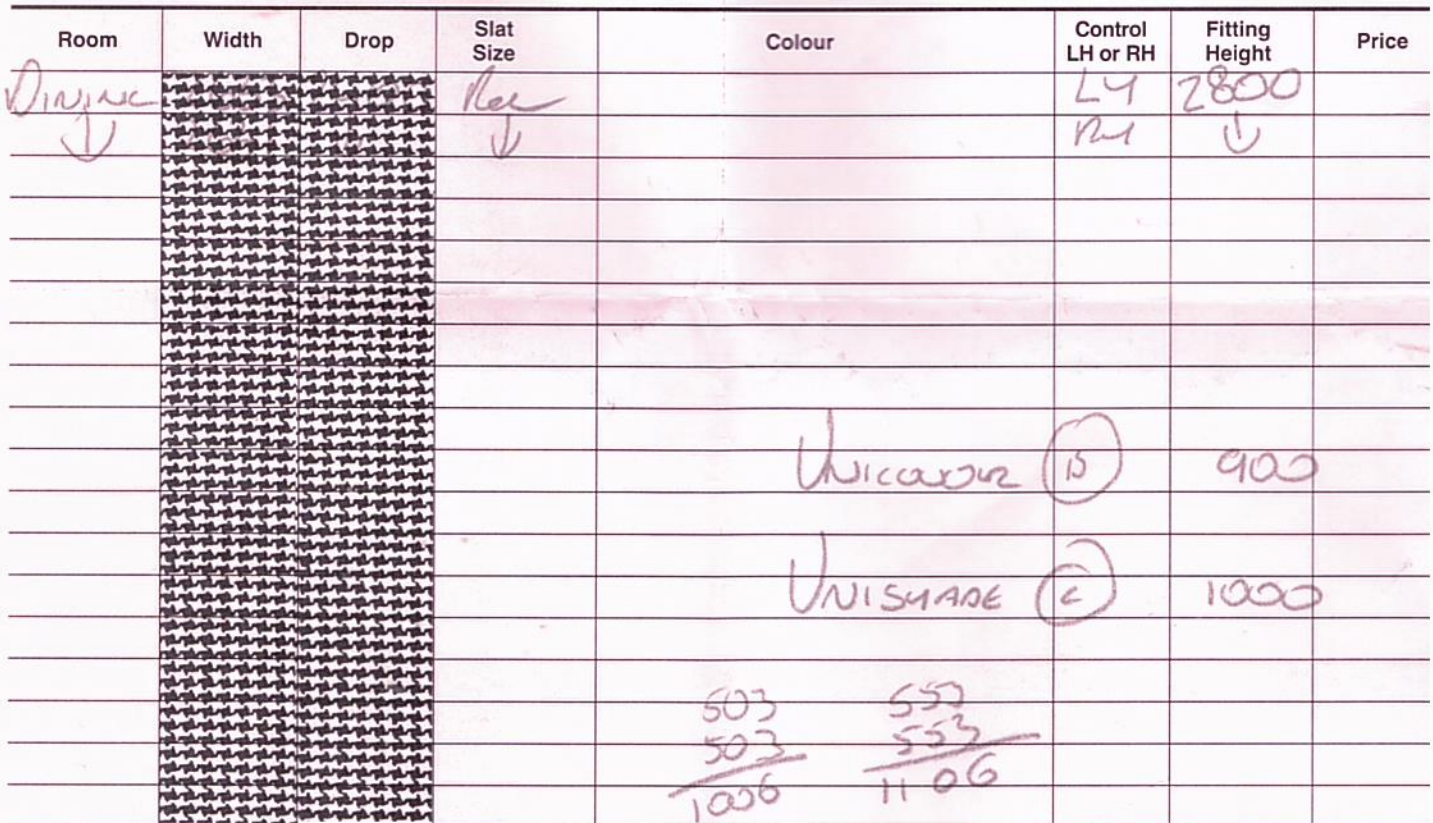 Room Width Drop Slat Size Colour Control LH or RH Fitting Height Price
DINING LH 2800
↓ ↓ RH ↓
UNICOLOUR B 900
UNISHADE C 1000
503 553
503 553
1006 1106